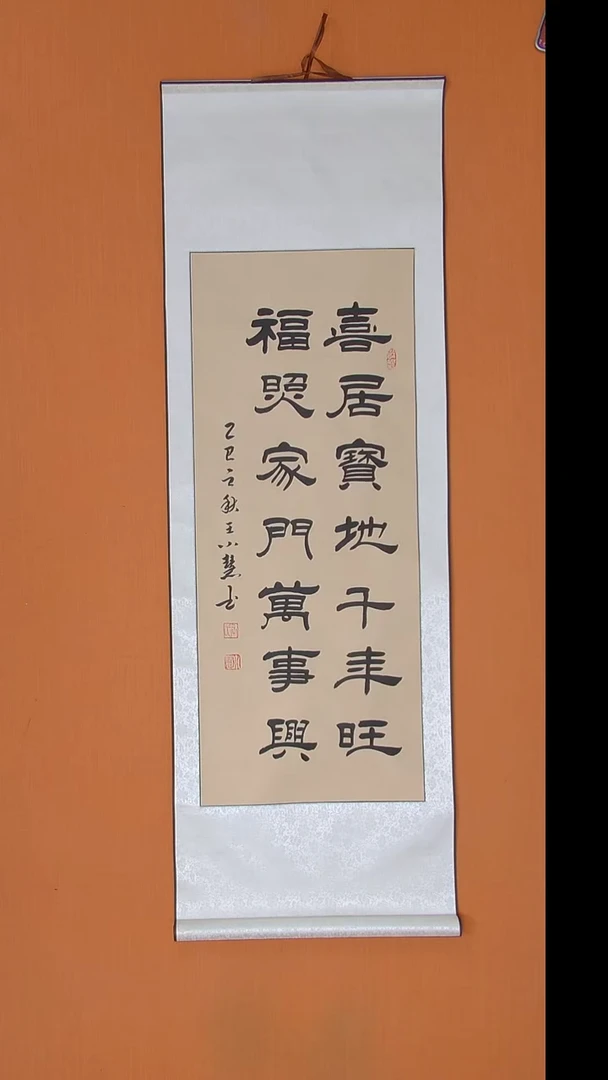 喜居寶地千年旺
福照家門萬事興
乙巳之秋王小慧书